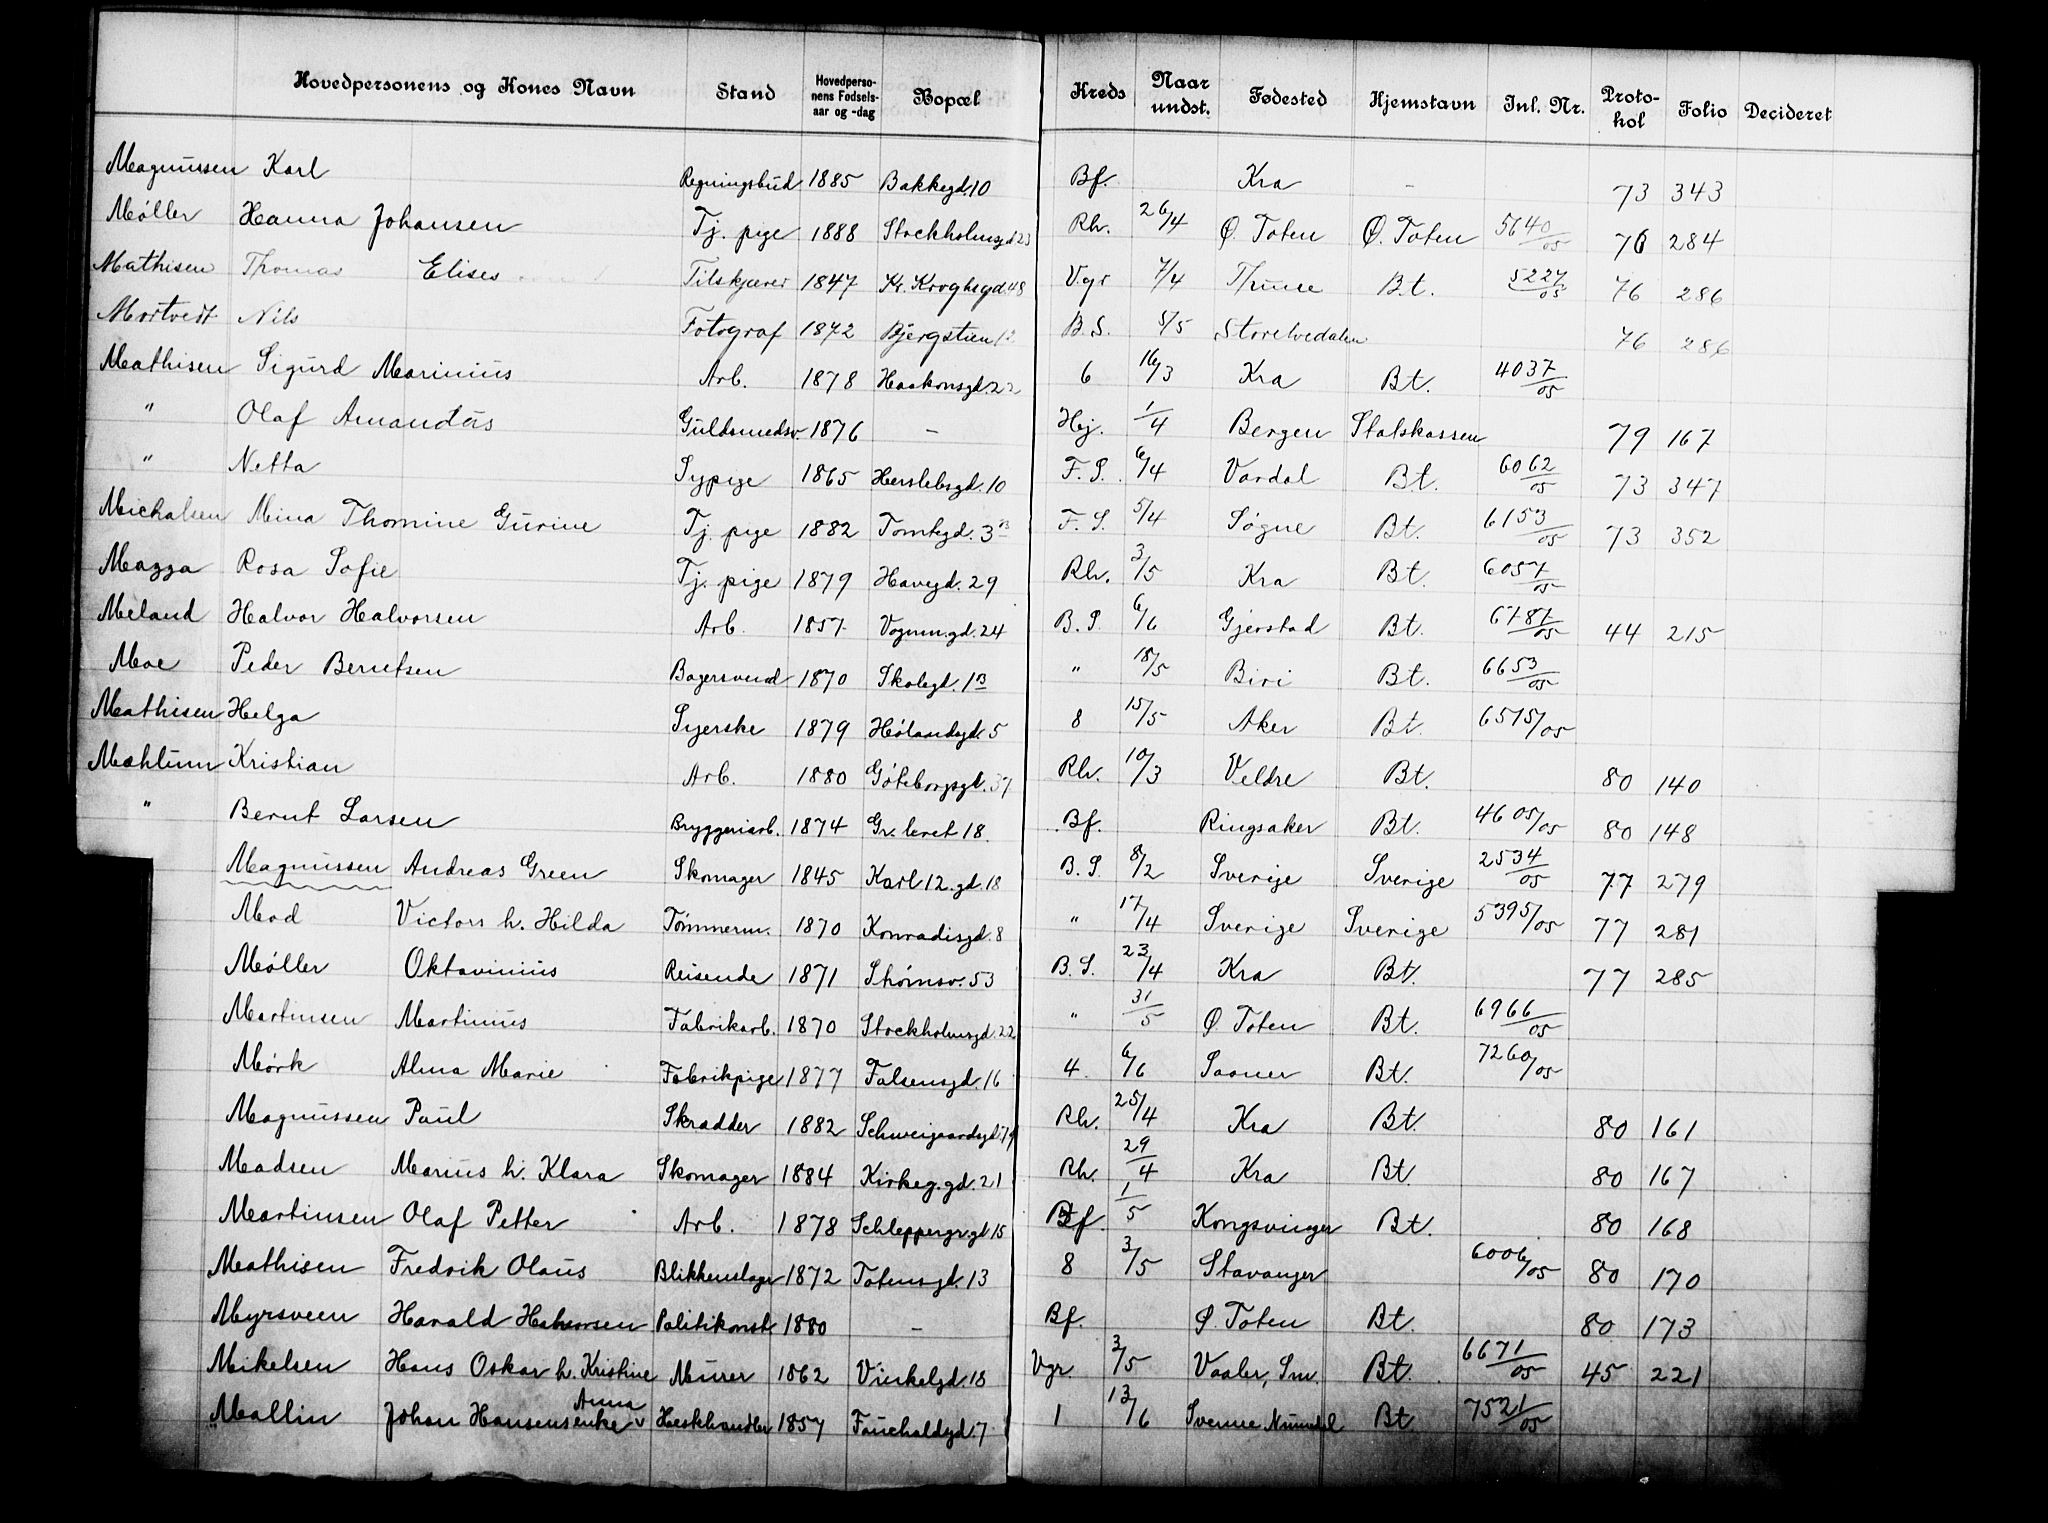 Hovedpersonens og Kones Navn Stand Hovedpersonens Fødselsaar og -dag Bopæl Kreds Naar undst. Fødested Hjemstavn Inl. Nr. Protokol Folio Decideret
Magnussen Karl Regningsbud 1885 Bakkegd. 10 Bf. Kra - 73 343
Møller Hanna Johansen Tj. pige 1888 Stockholmsgd 23 Rh. 26/4 Ø. Toten Ø. Toten 5640/05 76 284
Mathisen Thomas Elises Tilskjærer 1847 Kr. Kroghsgd. 48 Vgr 7/4 Bt. 5227/05 76 286
Mortvedt Nils Fotograf 1872 Bjergstien 12 B.S. 5/5 Storelvedalen 76 286
Mathisen Sigurd Marinius Arb. 1878 Haakonsgd. 22 6 16/3 Kra Bt. 4037/05
" Olaf Amandus Guldsmedsv. 1876 - Hej. 1/4 Bergen Statskassen 79 167
" Netta Sypige 1865 Herslebsgd. 10 F. S. 6/4 Vardal Bt. 6062/05 73 347
Michalsen Mina Thomine Gurine Tj. pige 1882 Tomtegd. 3 B F. S. 5/4 Søgne Bt. 6153/05 73 352
Mazza Rosa Sofie Tj. pige 1879 Havegd. 29 Rh. 3/5 Kra Bt. 6057/05
Meland Halvor Halvorsen Arb. 1857 Vognm.gd. 24 B. S. 6/6 Gjerstad Bt. 6787/05 44 215
Moe Peder Berntsen Bagersvend 1870 Skolegd. 1 B " 18/5 Biri Bt. 6653/05
Mathisen Helga Syerske 1879 Hølandsgd. 5 8 15/5 Aker Bt. 6515/05
Mæhlum Kristian Arb. 1880 Göteborgsgt. 37 Rh. 10/3 Veldre Bt. 80 140
" Bernt Larsen Bryggeriarb. 1874 Gr. leret 18 Bf. Ringsaker Bt. 4605/05 80 148
Magnussen Andreas Green Skomager 1845 Karl 12. gd. 18 B. S. 8/2 Sverige Sverige 2534/05 77 279
Mod Victor h. Hilda Tømmerm. 1870 Konradisgd. 8 " 17/4 Sverige Sverige 5395/05 77 281
Møller Oktavinius Reisende 1871 Strømsv. 53 B. S. 23/4 Kra Bt. 77 285
Martinsen Martinius Fabrikarb. 1870 Stockholmsgd. 22 " 31/5 Ø. Toten Bt. 6966/05
Mørk Alma Marie Fabrikpige 1877 Falsensgd. 16 4 6/6 Saaner Bt. 7260/05
Magnussen Paul Skrædder 1882 Schweigaardsgd. 79 Rh. 25/4 Kra Bt. 80 161
Madsen Marius h. Klara Skomager 1884 Kirkeg.gd. 21 Rh. 29/4 Kra Bt. 80 167
Martinsen Olaf Petter Arb. 1878 Schleppegr.gd 15 Bf. 1/5 Kongsvinger Bt. 80 168
Mathisen Fredrik Olaus Blikkenslager 1872 Totensgd. 13 8 3/5 Stavanger 6006/05 80 170
Myrsveen Harald Halvorsen Politikonst. 1880 - Bf. Ø. Toten Bt. 80 173
Mikelsen Hans Oskar h. Kristine Murer 1862 Vinkelgd. 18 Vgr. 3/5 Vaaler, Sm. Bt. 6671/05 45 221
Mallin Johan Hansens enke Anna Heskhandler 1857 Fauchaldsgd. 7 1 13/6 Bt. 7521/05